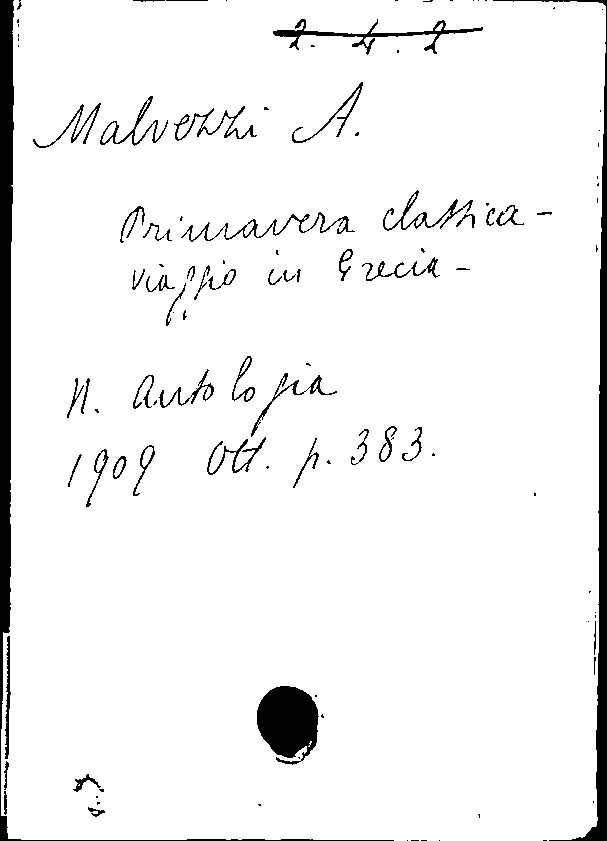 2. 4. 2
Malvezzi A.
Primavera classica -
viaggio in Grecia -
N. Antologia
1909 Ott. p. 383.